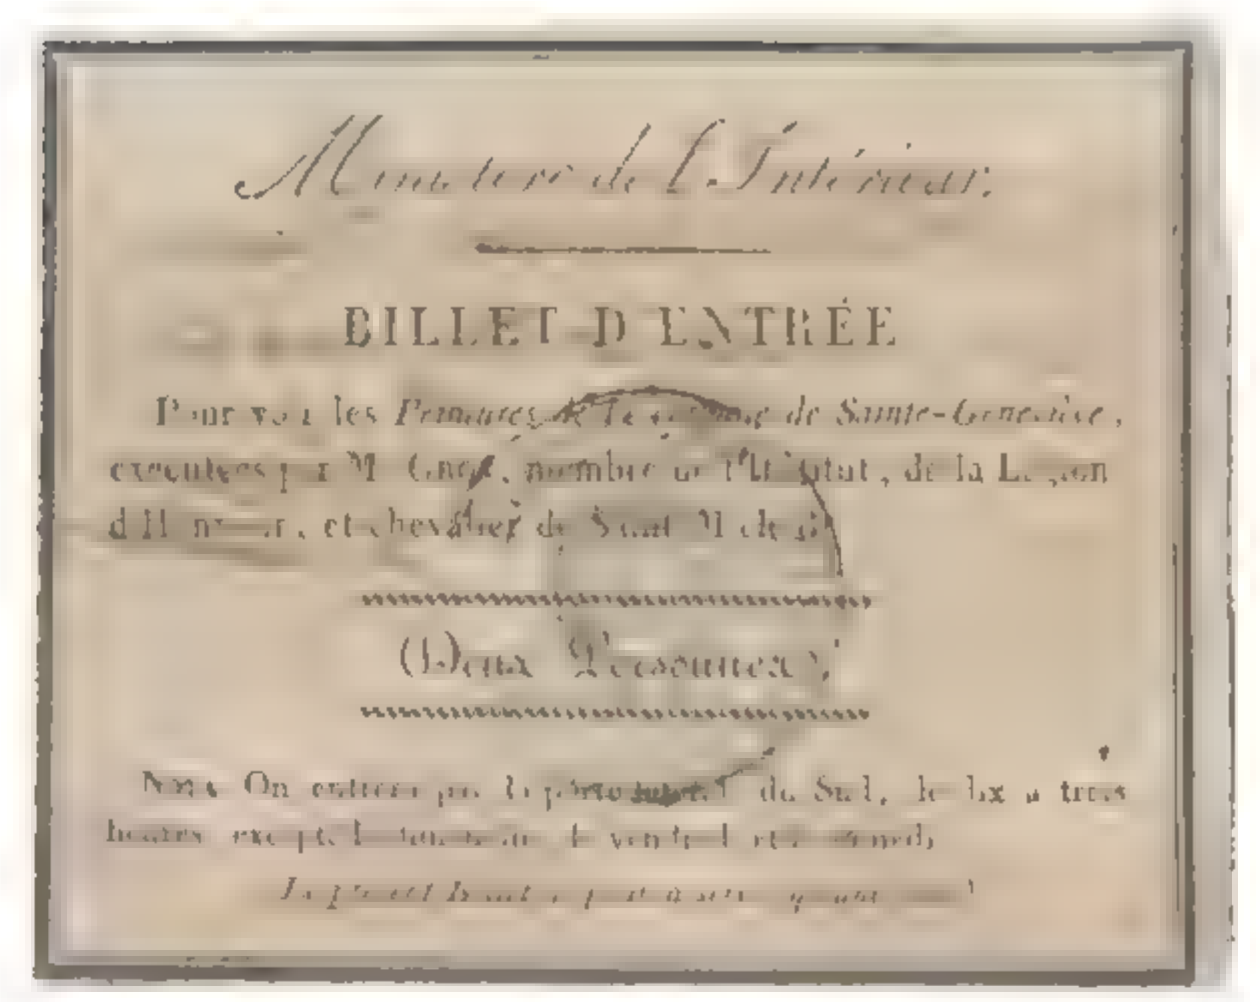 Ministère de l'Intérieur.
BILLET D'ENTRÉE
Pour voir les Peintures de la coupole de Sainte-Geneviève,
exécutées par M. Gros, membre de l'Institut, de la Légion
d'Honneur, et chevalier de Saint Michel.
(Deux Personnes)
NOTA. On entrera par la porte du Sud, de dix à trois
heures, excepté le vendredi et le samedi.
Le présent Billet